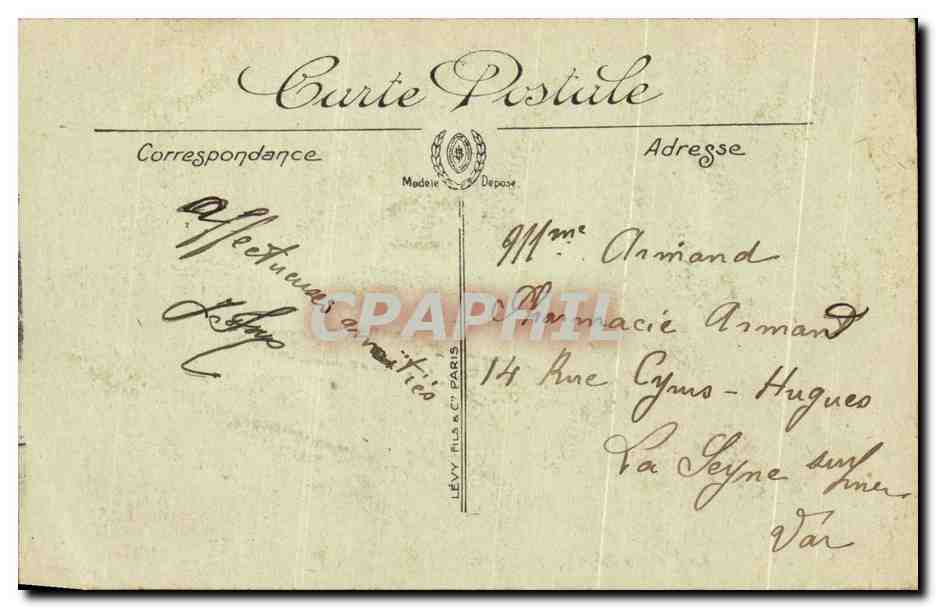 Carte Postale
Correspondance
Adresse
Modele Déposé.
Affectueuses amitiés
Mme Armand
Pharmacie Armand
14 Rue Cyrus-Hugues
La Seyne sur mer
Var
LÉVY FILS & Cie PARIS
CPARPHIL